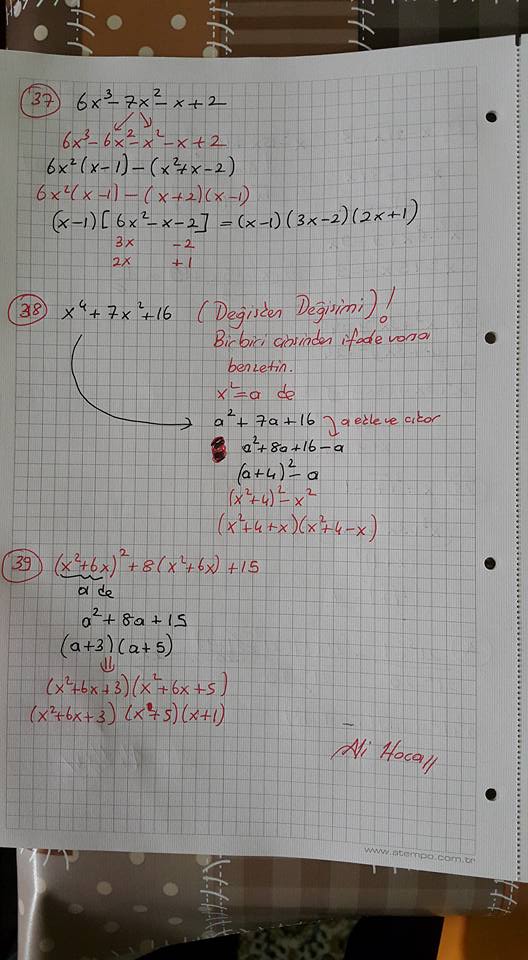 37 6x³-7x²-x+2
6x³-6x²-x²-x+2
6x²(x-1)-(x²+x-2)
6x²(x-1)-(x+2)(x-1)
(x-1)[6x²-x-2] =(x-1)(3x-2)(2x+1)
3x -2
2x +1
38 x⁴+7x²+16 (Değişken Değişimi)!
Birbiri cinsinden ifade varsa
benzetin.
x²=a de
a²+7a+16 a ekle ve çıkar
a²+8a+16-a
(a+4)²-a
(x²+4)²-x²
(x²+4+x)(x²+4-x)
39 (x²+6x)²+8(x²+6x)+15
a de
a²+8a+15
(a+3)(a+5)
(x²+6x+3)(x²+6x+5)
(x²+6x+3)(x+5)(x+1)
Ali Hoca
www.stempo.com.tr